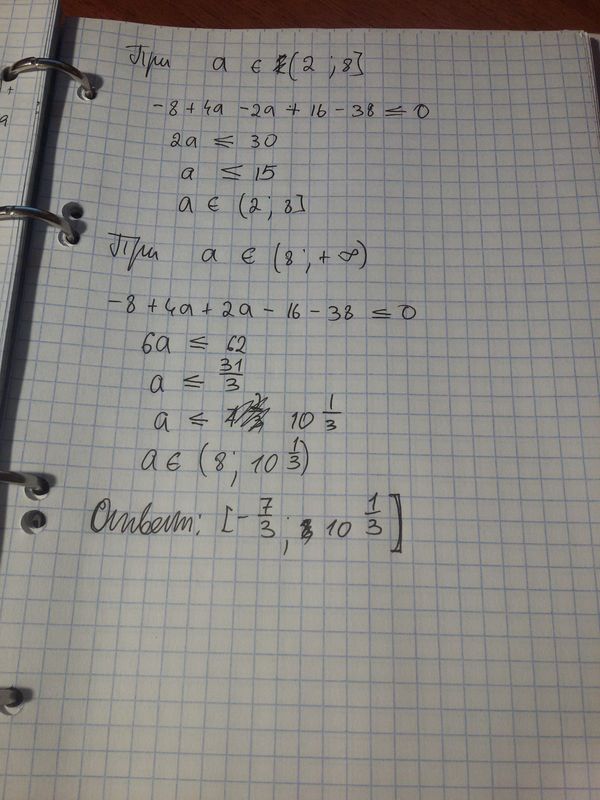 При a ∈ (2 ; 8]
-8 + 4a - 2a + 16 - 38 ≤ 0
2a ≤ 30
a ≤ 15
a ∈ (2 ; 8]
При a ∈ (8 ; +∞)
-8 + 4a + 2a - 16 - 38 ≤ 0
6a ≤ 62
a ≤ 31/3
a ≤ 10 1/3
a ∈ (8 ; 10 1/3)
Ответ: [-7/3 ; 10 1/3]